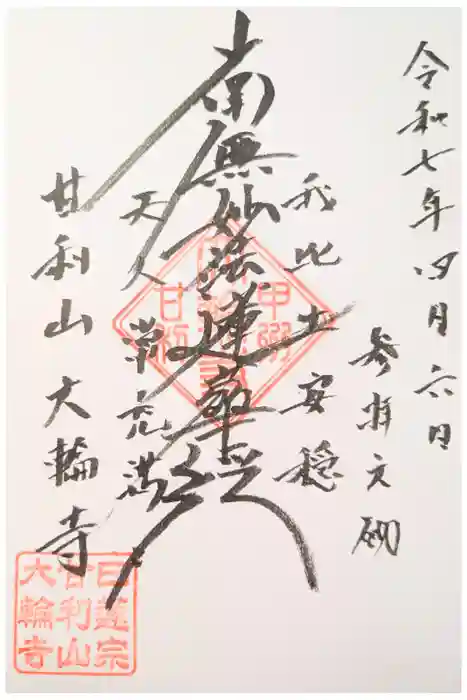 令和七年四月六日
参拝之砌
我此土安穏
南無妙法蓮華経
天人常充満
甘利山大輪寺
日蓮宗
甘利山
大輪寺